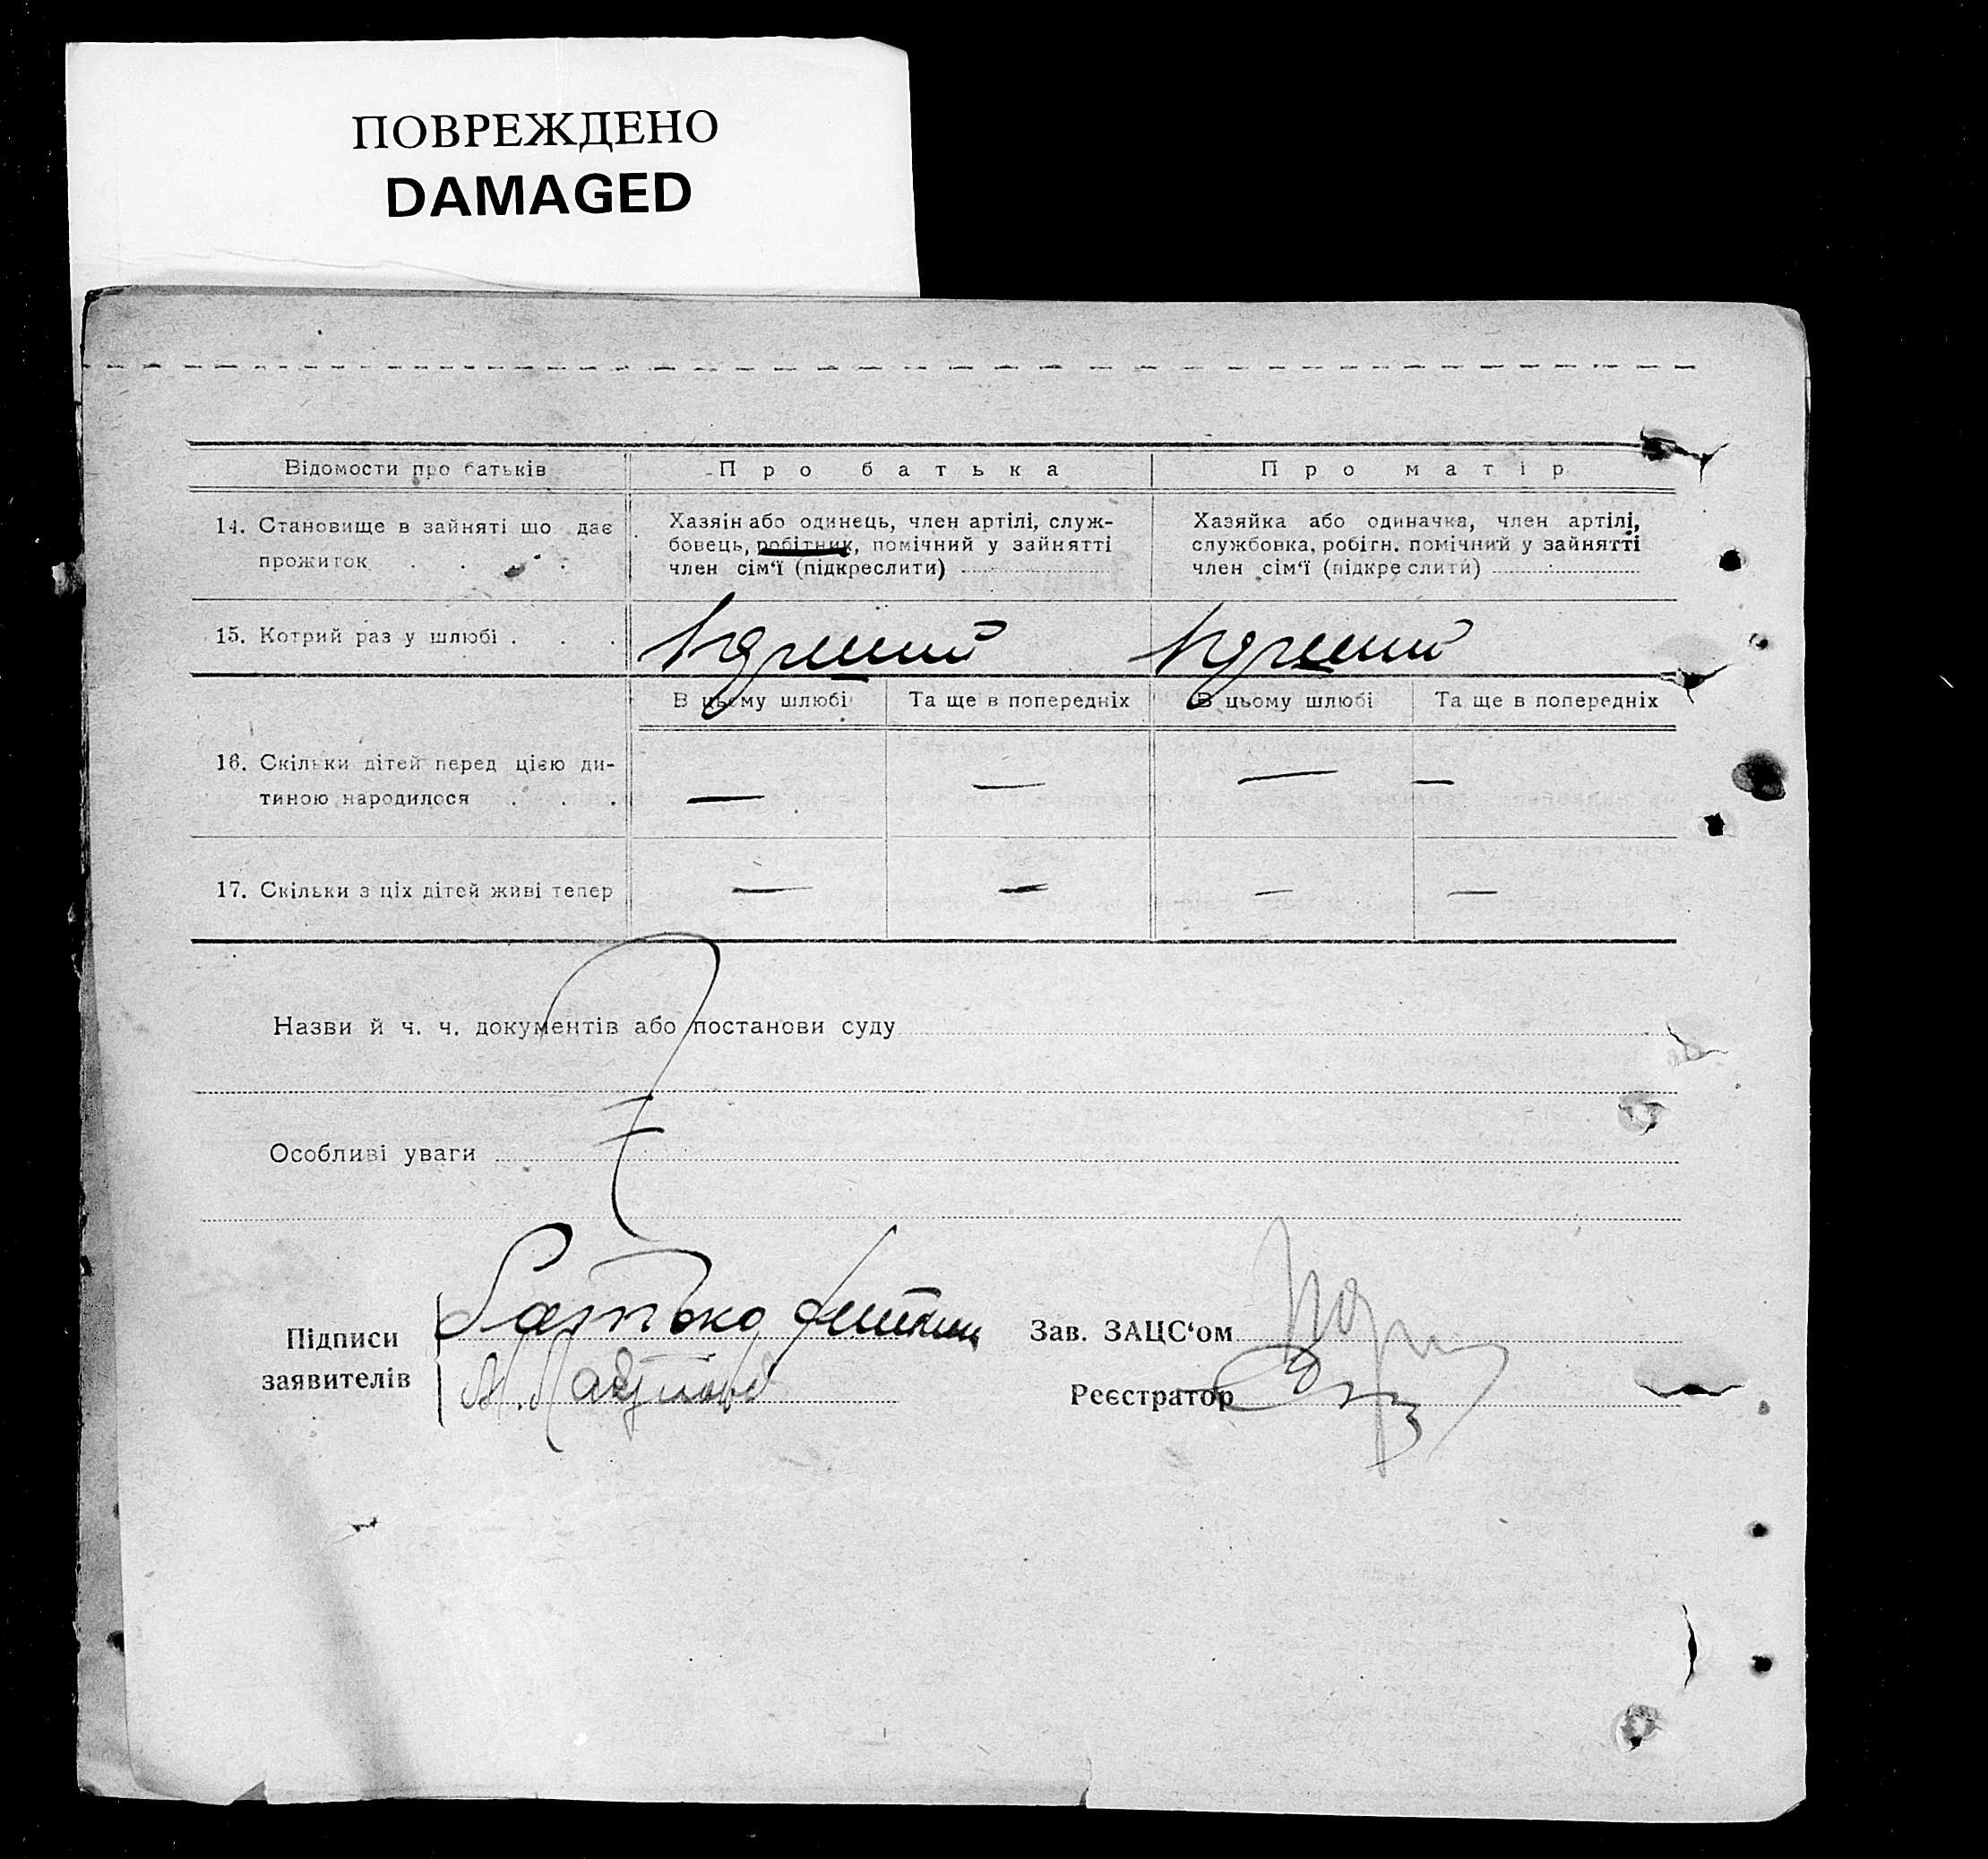 ПОВРЕЖДЕНО
DAMAGED
Відомости про батьків
Про батька
Про матір
14. Становище в зайняті що дає
прожиток . . . .
Хазяін або одинець, член артілі, служ-
бовець, робітник, помічний у зайнятті
член сім'ї (підкреслити)
Хазяйка або одиначка, член артілі,
службовка, робітн. помічний у зайнятті
член сім'ї (підкреслити)
15. Котрий раз у шлюбі . . .
перший
перший
В цьому шлюбі
Та ще в попередніх
В цьому шлюбі
Та ще в попередніх
16. Скільки дітей перед цією ди-
тиною народилося . . .
— — — —
17. Скільки з ціх дітей живі тепер
— — — —
Назви й ч. ч. документів або постанови суду
Особливі уваги
Підписи
заявителів
батько дитини
Зав. ЗАЦС'ом
Реєстратор